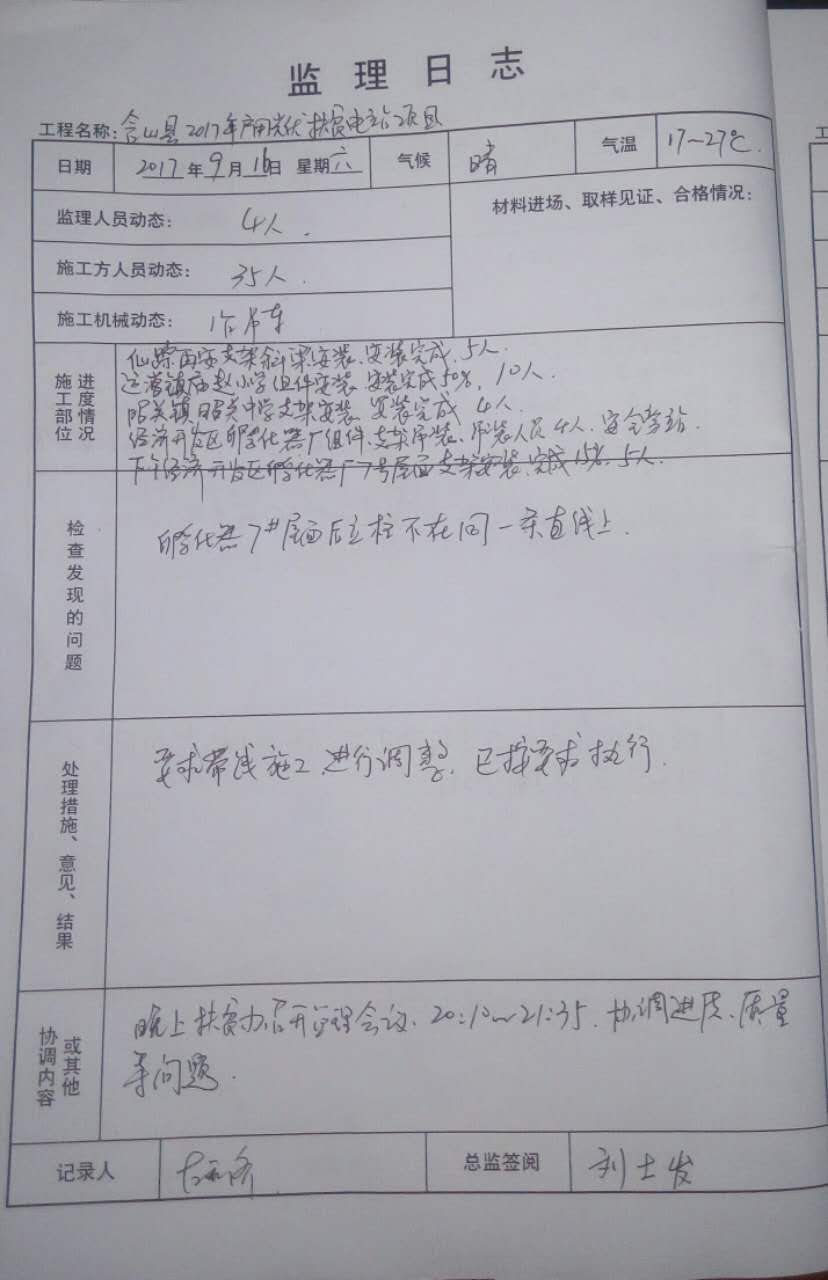 监理日志
工程名称:含山县2017年户用光伏扶贫电站项目
日期 2017年9月16日 星期六 气候 晴 气温 17~27℃.
监理人员动态: 4人. 材料进场、取样见证、合格情况:
施工方人员动态: 35人.
施工机械动态: 1台吊车
施工部位 进度情况
仙踪西安支架斜梁安装、安装完成、5人.
运漕镇庙赵小学组件安装、安装完成50%, 10人.
昭关镇昭关中学支架安装、安装完成 4人.
经济开发区孵化器厂组件、支架吊装、吊装人员4人、安全旁站.
下午经济开发区孵化器厂7号屋面支架安装、完成15%、5人.
检查发现的问题
孵化器7#屋面后立柱不在同一条直线上.
处理措施、意见、结果
要求带线施工、进行调整、已按要求执行.
协调内容 或其他
晚上扶贫办召开监理会议、20:10~21:35、协调进度、质量
等问题.
记录人 总监签阅 刘士发